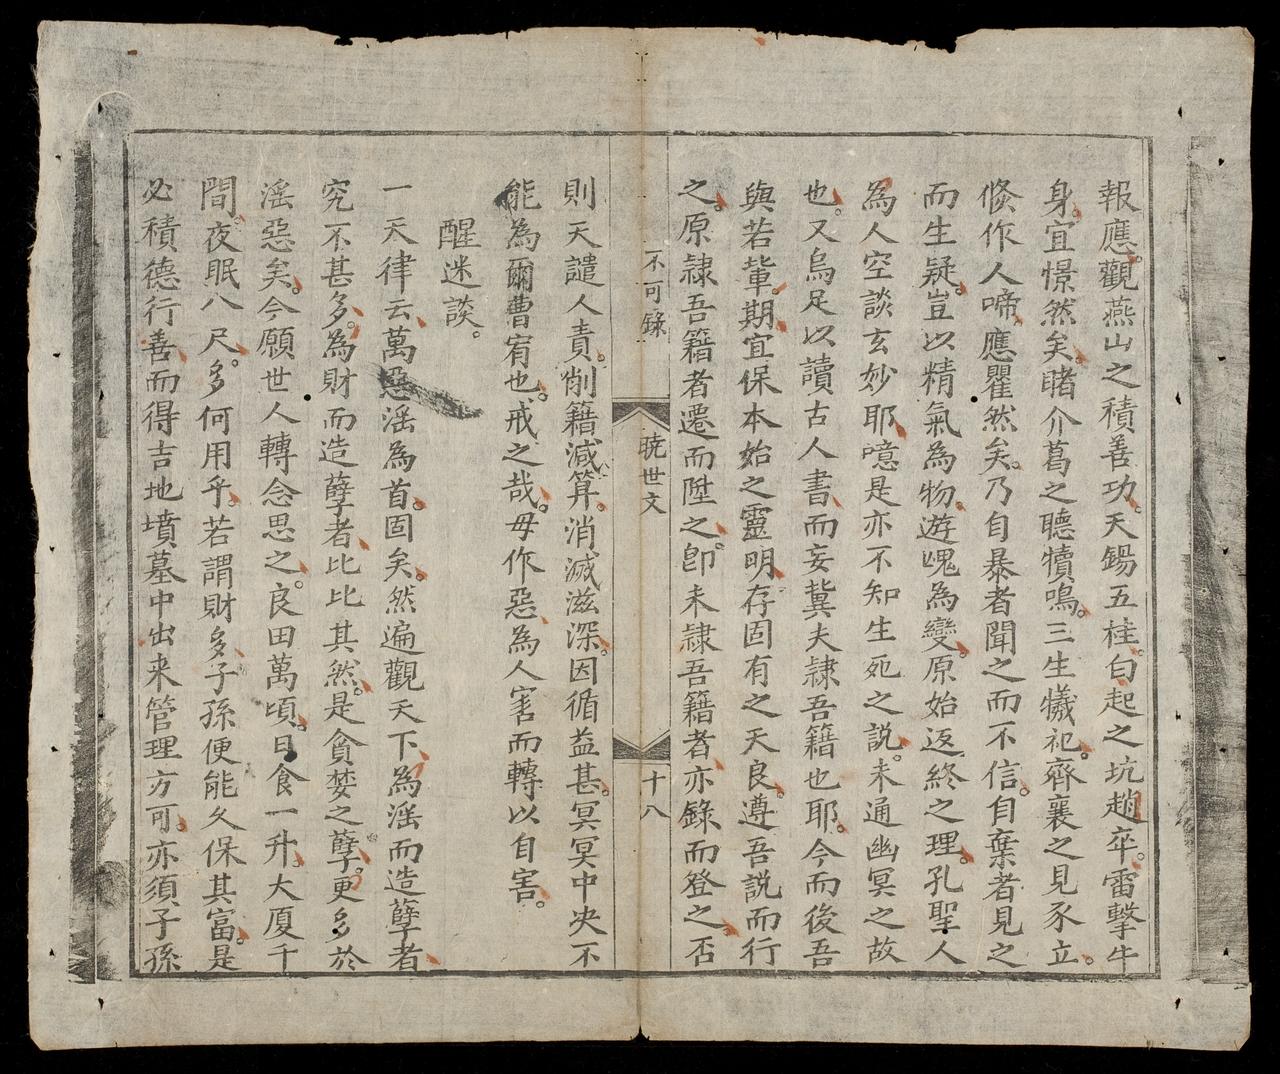 報應。觀燕山之積善功。天錫五桂。白起之坑趙卒。雷擊牛
身。宜憬然矣。睹介葛之聽犢鳴。三生犧祀。齊襄之見豕立。
倐作人啼。應瞿然矣。乃自暴者聞之而不信。自棄者見之
而生疑。豈以精氣為物。遊䰟為變。原始返終之理。孔聖人
為人空談玄妙耶。噫是亦不知生死之說。未通幽冥之故
也。又烏足以讀古人書。而妄冀夫隷吾籍也耶。今而後吾
與若輩。期宜保本始之靈明。存固有之天良。遵吾說而行
之。原隷吾籍者遷而陞之。卽未隷吾籍者。亦錄而登之。否
不可錄
暁世文
十八
則天譴人責。削籍減筭。消滅滋深。因循益甚。冥冥中央不
能為爾曹宥也。戒之哉。毋作惡。為人害而轉以自害。
醒迷談。
一天律云。萬惡滛為首。固矣。然遍觀天下。為滛而造孽者
究不甚多。為財而造孽者。比比其然。是貪婪之孽。更多於
滛惡矣。今願世人轉念思之。良田萬頃。日食一升。大厦千
間。夜眠八尺。多何用乎。若謂財多。子孫便能久保其富。是
必積德行善。而得吉地墳墓中出来管理方可。亦須子孫